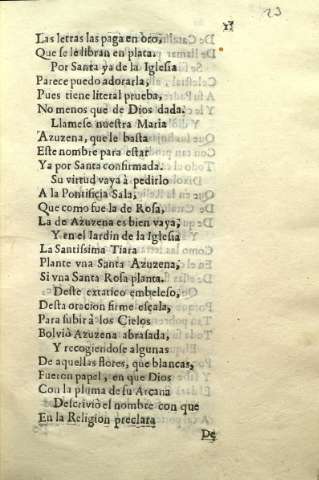 23
Las letras las paga en oro,
Que se le libran en plata.
Por Santa ya de la Iglesia
Parece puedo adorarla,
Pues tiene literal prueba,
No menos que de Dios dada.
Llamese nuestra Maria
Azuzena, que le basta
Este nombre para estar
Ya por Santa confirmada.
Su virtud vaya à pedirlo
A la Pontificia Sala,
Que como fue la de Rosa,
La de Azuzena es bien vaya;
Y en el Iardin de la Iglesia
La Santissima Tiara
Plante vna Santa Azuzena,
Si vna Santa Rosa planta.
Deste extatico embeleso,
Desta oracion firme escala,
Para subir à los Cielos
Bolviò Azuzena abrasada,
Y recogiendose algunas
De aquellas flores, que blancas,
Fueron papel, en que Dios
Con la pluma de su Arcana
Descriviò el nombre con que
En la Religion preclara
De